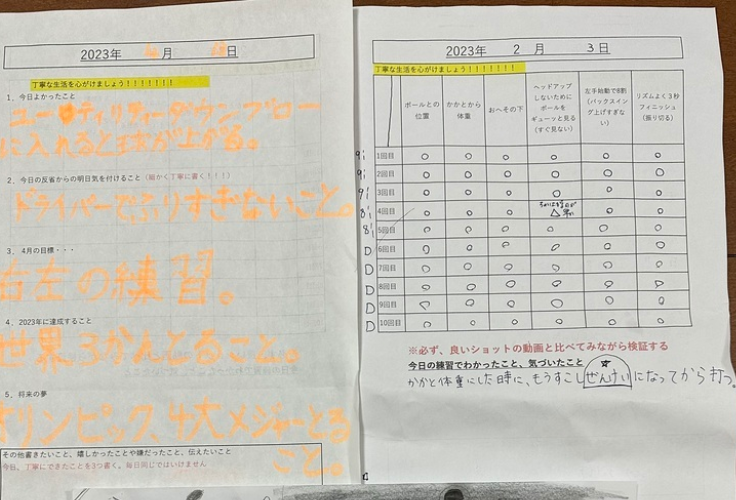 2023年 月 日
丁寧な生活を心がけましょう!!!!!!!
1、今日よかったこと
ユーティリティーダウンブロー
に入れると球が上がる。
2、今日の反省からの明日気を付けること(細かく丁寧に書く!!!)
ドライバーでふりすぎないこと。
3、4月の目標・・・
右左の練習。
4、2023年に達成すること
世界3かんとること。
5、将来の夢
オリンピック、4大メジャーとる
こと。
その他書きたいこと、嬉しかったことや嫌だったこと、伝えたいこと
今日、丁寧にできたことを3つ書く。毎日同じではいけません
2023年 2 月 3日
丁寧な生活を心がけましょう!!!!!!!
ボールとの位置 かかとから体重 おへその下 ヘッドアップしないためにボールをギューッと見る(すぐ見ない) 左手始動で8割(バックスイング上げすぎない) リズムよく3秒フィニッシュ(振り切る)
9i 1回目 ○ ○ ○ ○ ○ ○
9i 2回目 ○ ○ ○ ○ ○ ○
9i 3回目 ○ ○ ○ ○ ○ ○
8i 4回目 ○ ○ ○ △ ○ ○
8i 5回目 ○ ○ ○ ○ ○ ○
D 6回目 ○ ○ ○ ○ ○ ○
D 7回目 ○ ○ ○ ○ ○ ○
D 8回目 ○ ○ ○ ○ ○ ○
D 9回目 ○ ○ ○ ○ ○ ○
D 10回目 ○ ○ ○ ○ ○ ○
※必ず、良いショットの動画と比べてみながら検証する
今日の練習でわかったこと、気づいたこと
かかと体重にした時に、もうすこしぜんけいになってから打つ。